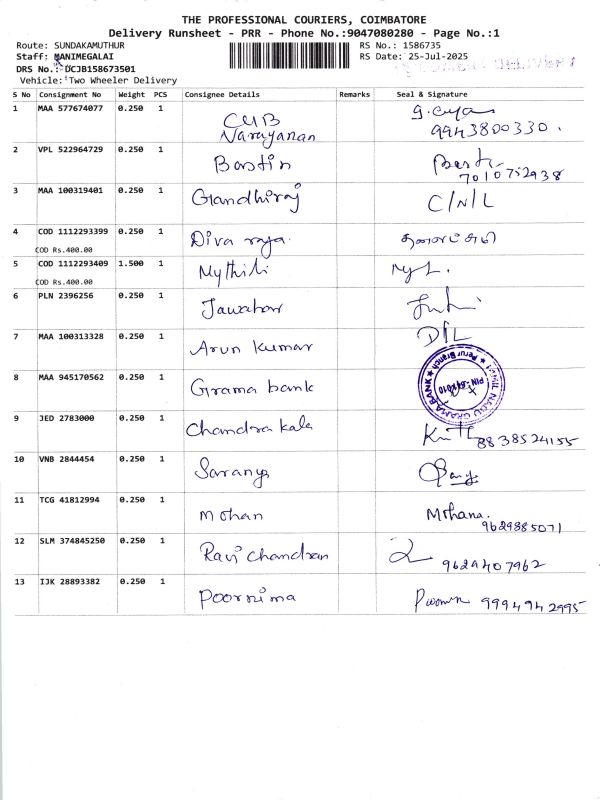 THE PROFESSIONAL COURIERS, COIMBATORE
Delivery Runsheet - PRR - Phone No.:9047080280 - Page No.:1
Route: SUNDAKAMUTHUR
RS No.: 1586735
Staff: MANIMEGALAI
RS Date: 25-Jul-2025
DRS No.: DCJB158673501
Vehicle: Two Wheeler Delivery
S No Consignment No Weight PCS Consignee Details Remarks Seal & Signature
1 MAA 577674077 0.250 1 CUB
Narayanan 9943800330.
2 VPL 522964729 0.250 1 Bastin
7010752938
3 MAA 100319401 0.250 1 Gandhiraj C/N/L
4 COD 1112293399 0.250 1 Diva raja
COD Rs.400.00
5 COD 1112293409 1.500 1 Mythili
COD Rs.400.00
6 PLN 2396256 0.250 1 Jawahar
7 MAA 100313328 0.250 1 Arun Kumar D/L
8 MAA 945170562 0.250 1 Grama bank
TAMIL NADU GRAMA BANK
Perur Branch
9 JED 2783000 0.250 1 Chandrakala
8838524155
10 VNB 2844454 0.250 1 Saranya
11 TCG 41812994 0.250 1 Mohan Mohana.
9629885071
12 SLM 374845250 0.250 1 Ravi chandran 9629407962
13 IJK 28893382 0.250 1 Poornima 9994942995